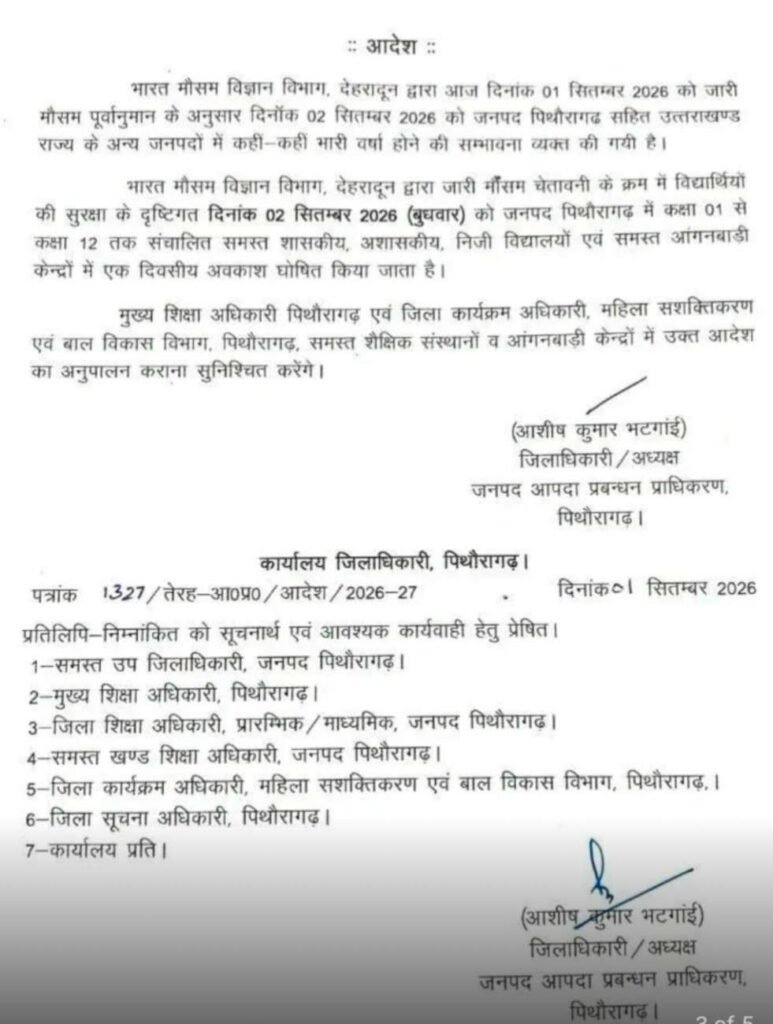 :: आदेश ::
भारत मौसम विज्ञान विभाग, देहरादून द्वारा आज दिनांक 01 सितम्बर 2026 को जारी
मौसम पूर्वानुमान के अनुसार दिनॉक 02 सितम्बर 2026 को जनपद पिथौरागढ़ सहित उत्तराखण्ड
राज्य के अन्य जनपदों में कहीं–कहीं भारी वर्षा होने की सम्भावना व्यक्त की गयी है।
भारत मौसम विज्ञान विभाग, देहरादून द्वारा जारी मौंसम चेतावनी के क्रम में विद्यार्थियों
की सुरक्षा के दृष्टिगत दिनांक 02 सितम्बर 2026 (बुधवार) को जनपद पिथौरागढ़ में कक्षा 01 से
कक्षा 12 तक संचालित समस्त शासकीय, अशासकीय, निजी विद्यालयों एवं समस्त आंगनबाड़ी
केन्द्रों में एक दिवसीय अवकाश घोषित किया जाता है।
मुख्य शिक्षा अधिकारी पिथौरागढ़ एवं जिला कार्यक्रम अधिकारी, महिला सशक्तिकरण
एवं बाल विकास विभाग, पिथौरागढ़, समस्त शैक्षिक संस्थानों व आंगनबाड़ी केन्द्रों में उक्त आदेश
का अनुपालन कराना सुनिश्चित करेंगे।
(आशीष कुमार भटगांई)
जिलाधिकारी/अध्यक्ष
जनपद आपदा प्रबन्धन प्राधिकरण,
पिथौरागढ़।
कार्यालय जिलाधिकारी, पिथौरागढ़।
पत्रांक 1327/तेरह–आ0प्र0/आदेश/2026–27 दिनांक 01 सितम्बर 2026
प्रतिलिपि–निम्नांकित को सूचनार्थ एवं आवश्यक कार्यवाही हेतु प्रेषित।
1–समस्त उप जिलाधिकारी, जनपद पिथौरागढ़।
2–मुख्य शिक्षा अधिकारी, पिथौरागढ़।
3–जिला शिक्षा अधिकारी, प्रारम्भिक/माध्यमिक, जनपद पिथौरागढ़।
4–समस्त खण्ड शिक्षा अधिकारी, जनपद पिथौरागढ़।
5–जिला कार्यक्रम अधिकारी, महिला सशक्तिकरण एवं बाल विकास विभाग, पिथौरागढ़,।
6–जिला सूचना अधिकारी, पिथौरागढ़।
7–कार्यालय प्रति।
(आशीष कुमार भटगांई)
जिलाधिकारी/अध्यक्ष
जनपद आपदा प्रबन्धन प्राधिकरण,
पिथौरागढ़।
3 of 5